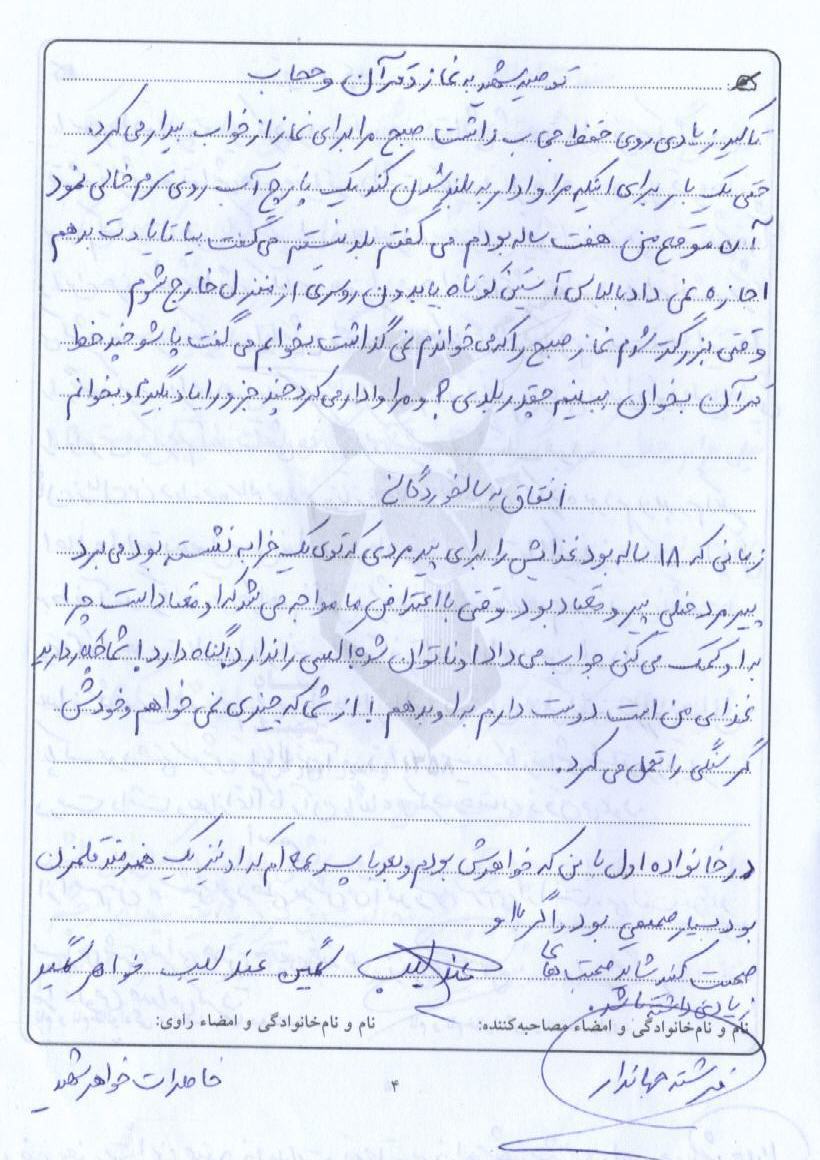 توصیه شهید به نماز و قرآن و حجاب
تاکید زیادی روی حفظ حجاب داشت صبح مرا برای نماز از خواب بیدار می کرد.
حتی یک بار برای اینکه مرا وادار به بلند شدن کند یک پارچ آب روی سرم خالی نمود
آن موقع من هفت ساله بودم می گفتم بلد نیستم می گفت بیا تا یادت بدهم
اجازه نمی داد با لباس آستین کوتاه یا بدون روسری از منزل خارج شوم
وقتی بزرگتر شدم نماز صبح را که می خواندم نمی گذاشت بخوابم می گفت پاشو چند خط
قرآن بخوان ببینیم چقدر بلدی؟ و مرا وادار می کرد چند جزء را یاد بگیرم و بخوانم
انفاق به سالخوردگان
زمانی که ۱۸ ساله بود غذایش را برای پیرمردی که توی یک خرابه نشسته بود می برد
پیرمرد خیلی پیر و معتاد بود وقتی با اعتراض ما مواجه می شد که او معتاد است چرا
به او کمک می کنی جواب می داد او ناتوان شده! کسی را ندارد، گناه دارد! شما چکار دارید
غذای من است دوست دارم به او بدهم! از شما که چیزی نمی خواهم و خودش
گرسنگی را تحمل می کرد.
در خانواده اول با من که خواهرش بودم و بعد با پسر عمه ام که او نیز یک هنرمند قلمزن
بود بسیار صمیمی بود و اگر با او
صحبت کنید شاید صحبت های
زیادی داشته باشد.
عندلیب
شهین عندلیب خواهر شهید
نام و نام‌خانوادگی و امضاء مصاحبه‌کننده:
نام و نام‌خانوادگی و امضاء راوی:
فرشته جهاندار
۴
خاطرات خواهر شهید